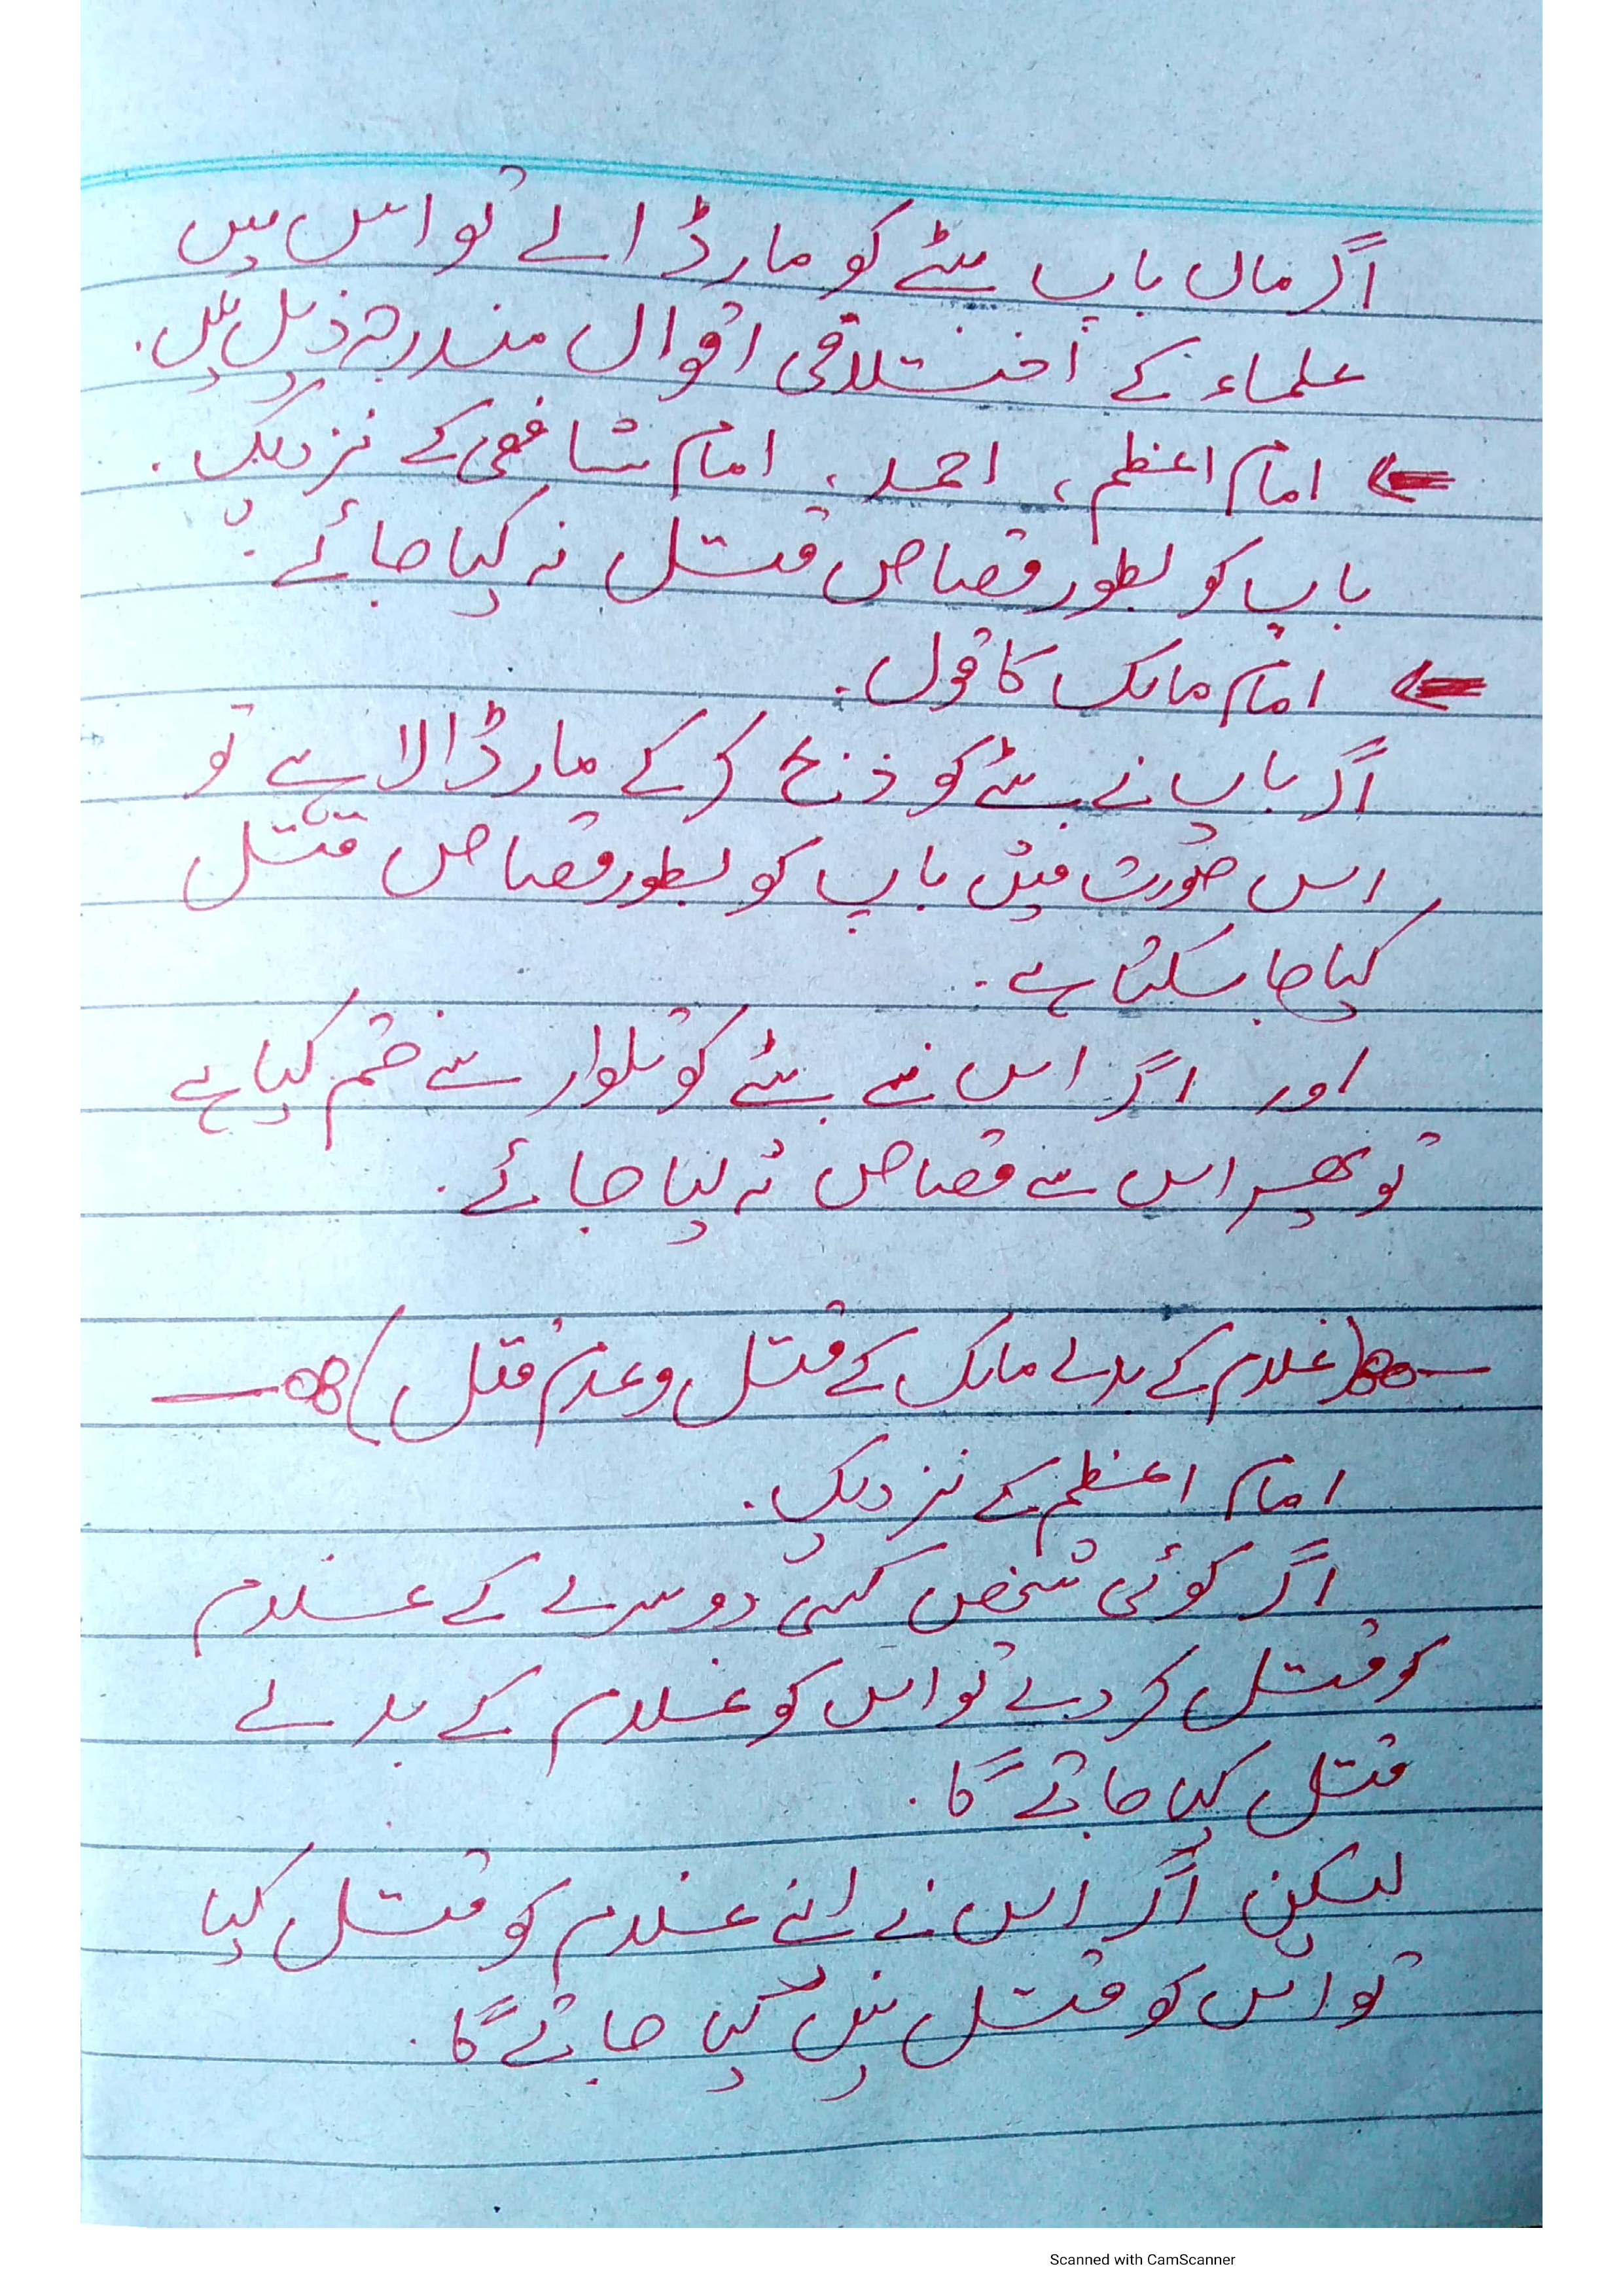 اگر ماں باپ بیٹے کو مار ڈالے تو اس میں
علماء کے اختلافی اقوال مندرجہ ذیل ہیں۔
امام اعظم، احمد، امام شافعی کے نزدیک۔
باپ کو بطور قصاص قتل نہ کیا جائے۔
امام مالک کا قول۔
اگر باپ نے بیٹے کو ذبح کر کے مار ڈالا ہے تو
اس صورت میں باپ کو بطور قصاص قتل
کیا جا سکتا ہے۔
اور اگر اس نے بیٹے کو تلوار سے ختم کیا ہے
تو پھر اس سے قصاص نہ لیا جائے۔
(غلام کے بدلے مالک کے قتل و عدم قتل)
امام اعظم کے نزدیک۔
اگر کوئی شخص کسی دوسرے کے غلام
کو قتل کر دے تو اس کو غلام کے بدلے
قتل کیا جائے گا۔
لیکن اگر اس نے اپنے غلام کو قتل کیا
تو اس کو قتل نہیں کیا جائے گا۔
Scanned with CamScanner